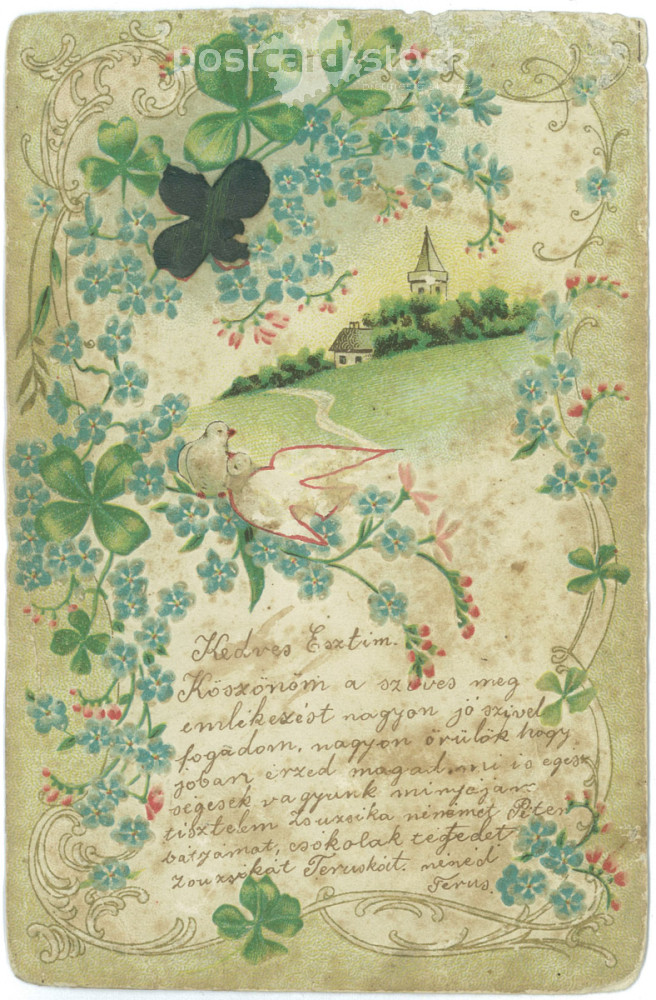 postcard.stock
Kedves Esztim.
Köszönöm a szives meg
emlékezést nagyon jó szivel
fogadom, nagyon örülök hogy
joban érzed magad, mi is egész
ségesek vagyunk minyájan
tisztelem Zsuzsika nénémet Péter
bátyámat, csokolak tégedet
Zsuzsikát Teruskáit. nénéd
Terus.